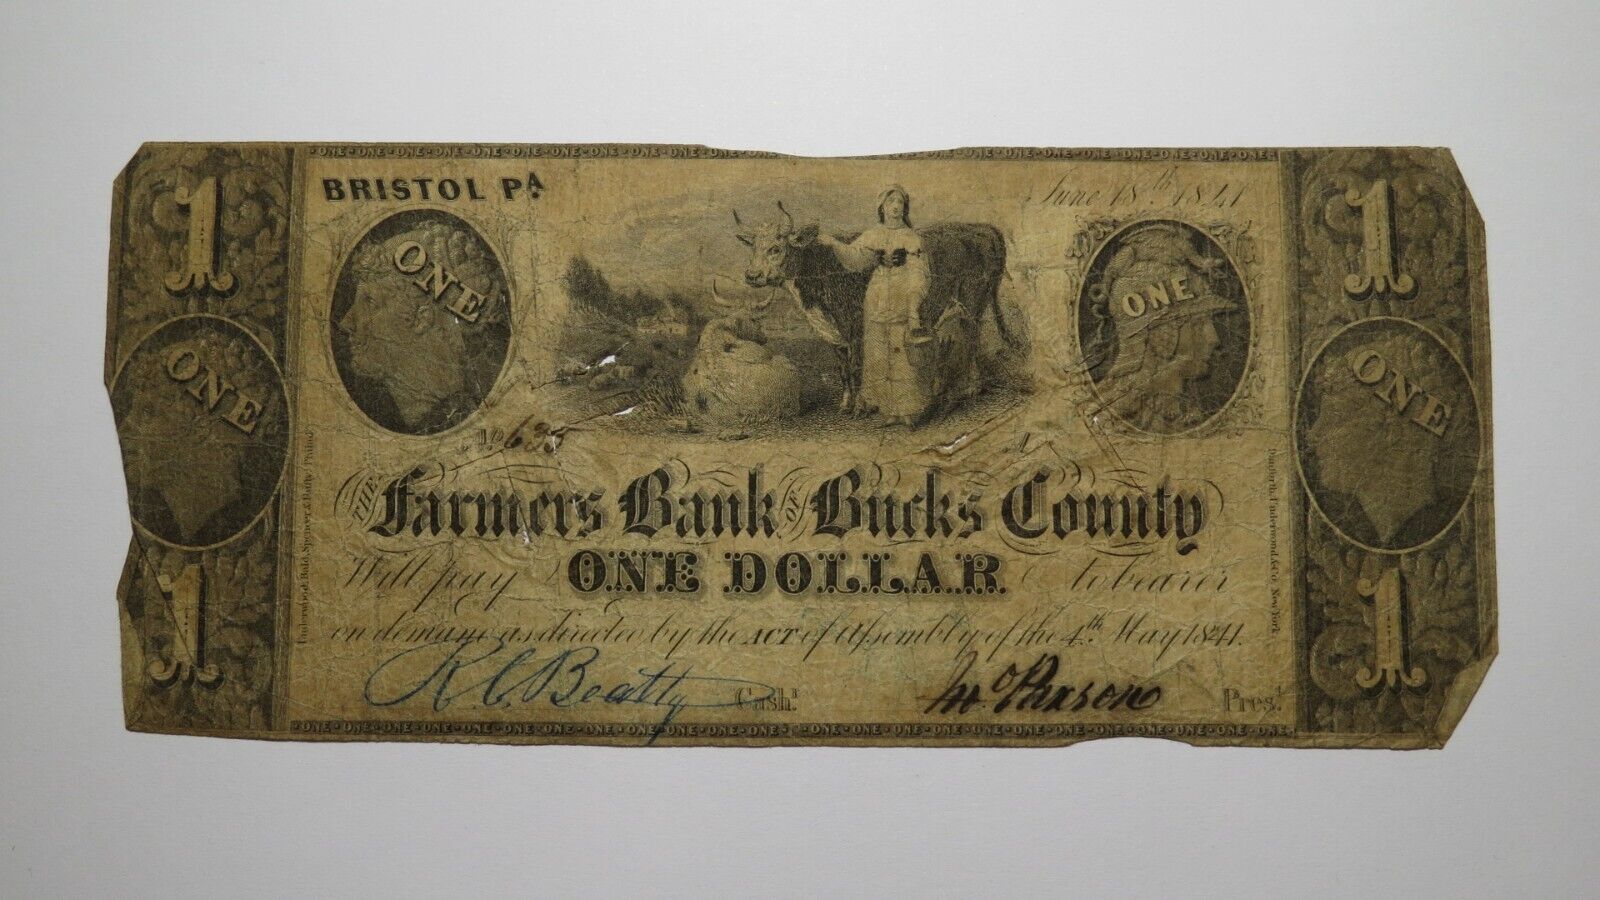 ONE·ONE·ONE·ONE·ONE·ONE·ONE·ONE·ONE·ONE·ONE·ONE
1 1
BRISTOL PA.
June 18th 1841
ONE ONE
ONE ONE
No. 635 A
THE Farmers Bank OF Bucks County
Will pay ONE DOLLAR to bearer
on demand as directed by the ACT of Assembly of the 4th May 1841.
R. C. Beatty Cash.r Paxson Pres.t
1 1
Underwood, Bald, Spencer & Hufty, Philad.
Danforth, Underwood & Co. New York
ONE·ONE·ONE·ONE·ONE·ONE·ONE·ONE·ONE·ONE·ONE·ONE